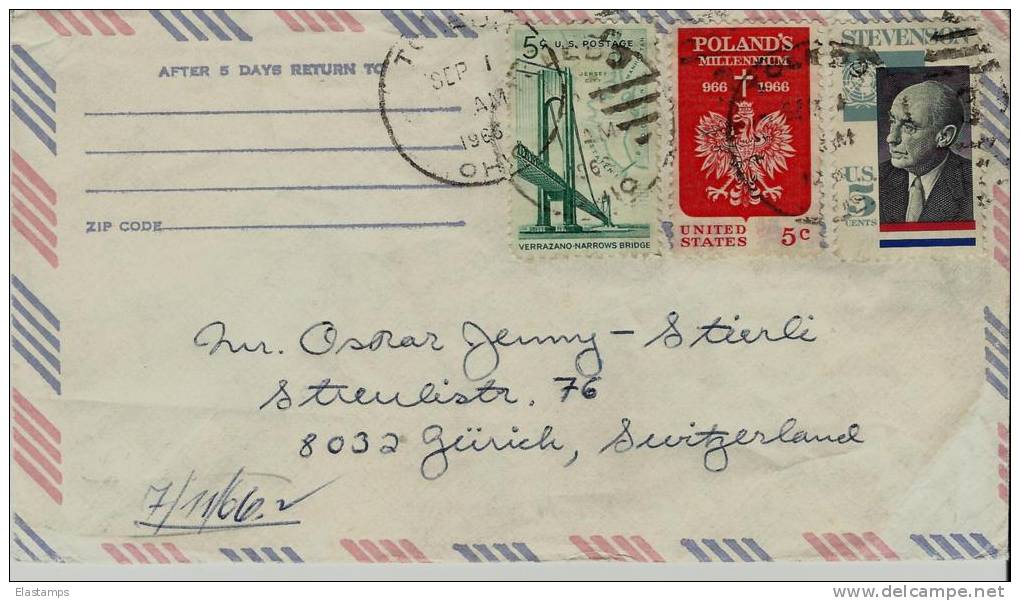 AFTER 5 DAYS RETURN TO
ZIP CODE
SEP 1
AM
1966
OHIO
5c U.S. POSTAGE
JERSEY
VERRAZANO-NARROWS BRIDGE
POLAND'S
MILLENNIUM
966 1966
UNITED
STATES 5c
STEVENSON
U.S.
5
CENTS
Mr. Oskar Jenny-Stierli
Streulistr. 76
8032 Zürich, Switzerland
7/11/66.
Elastamps
delcampe.net